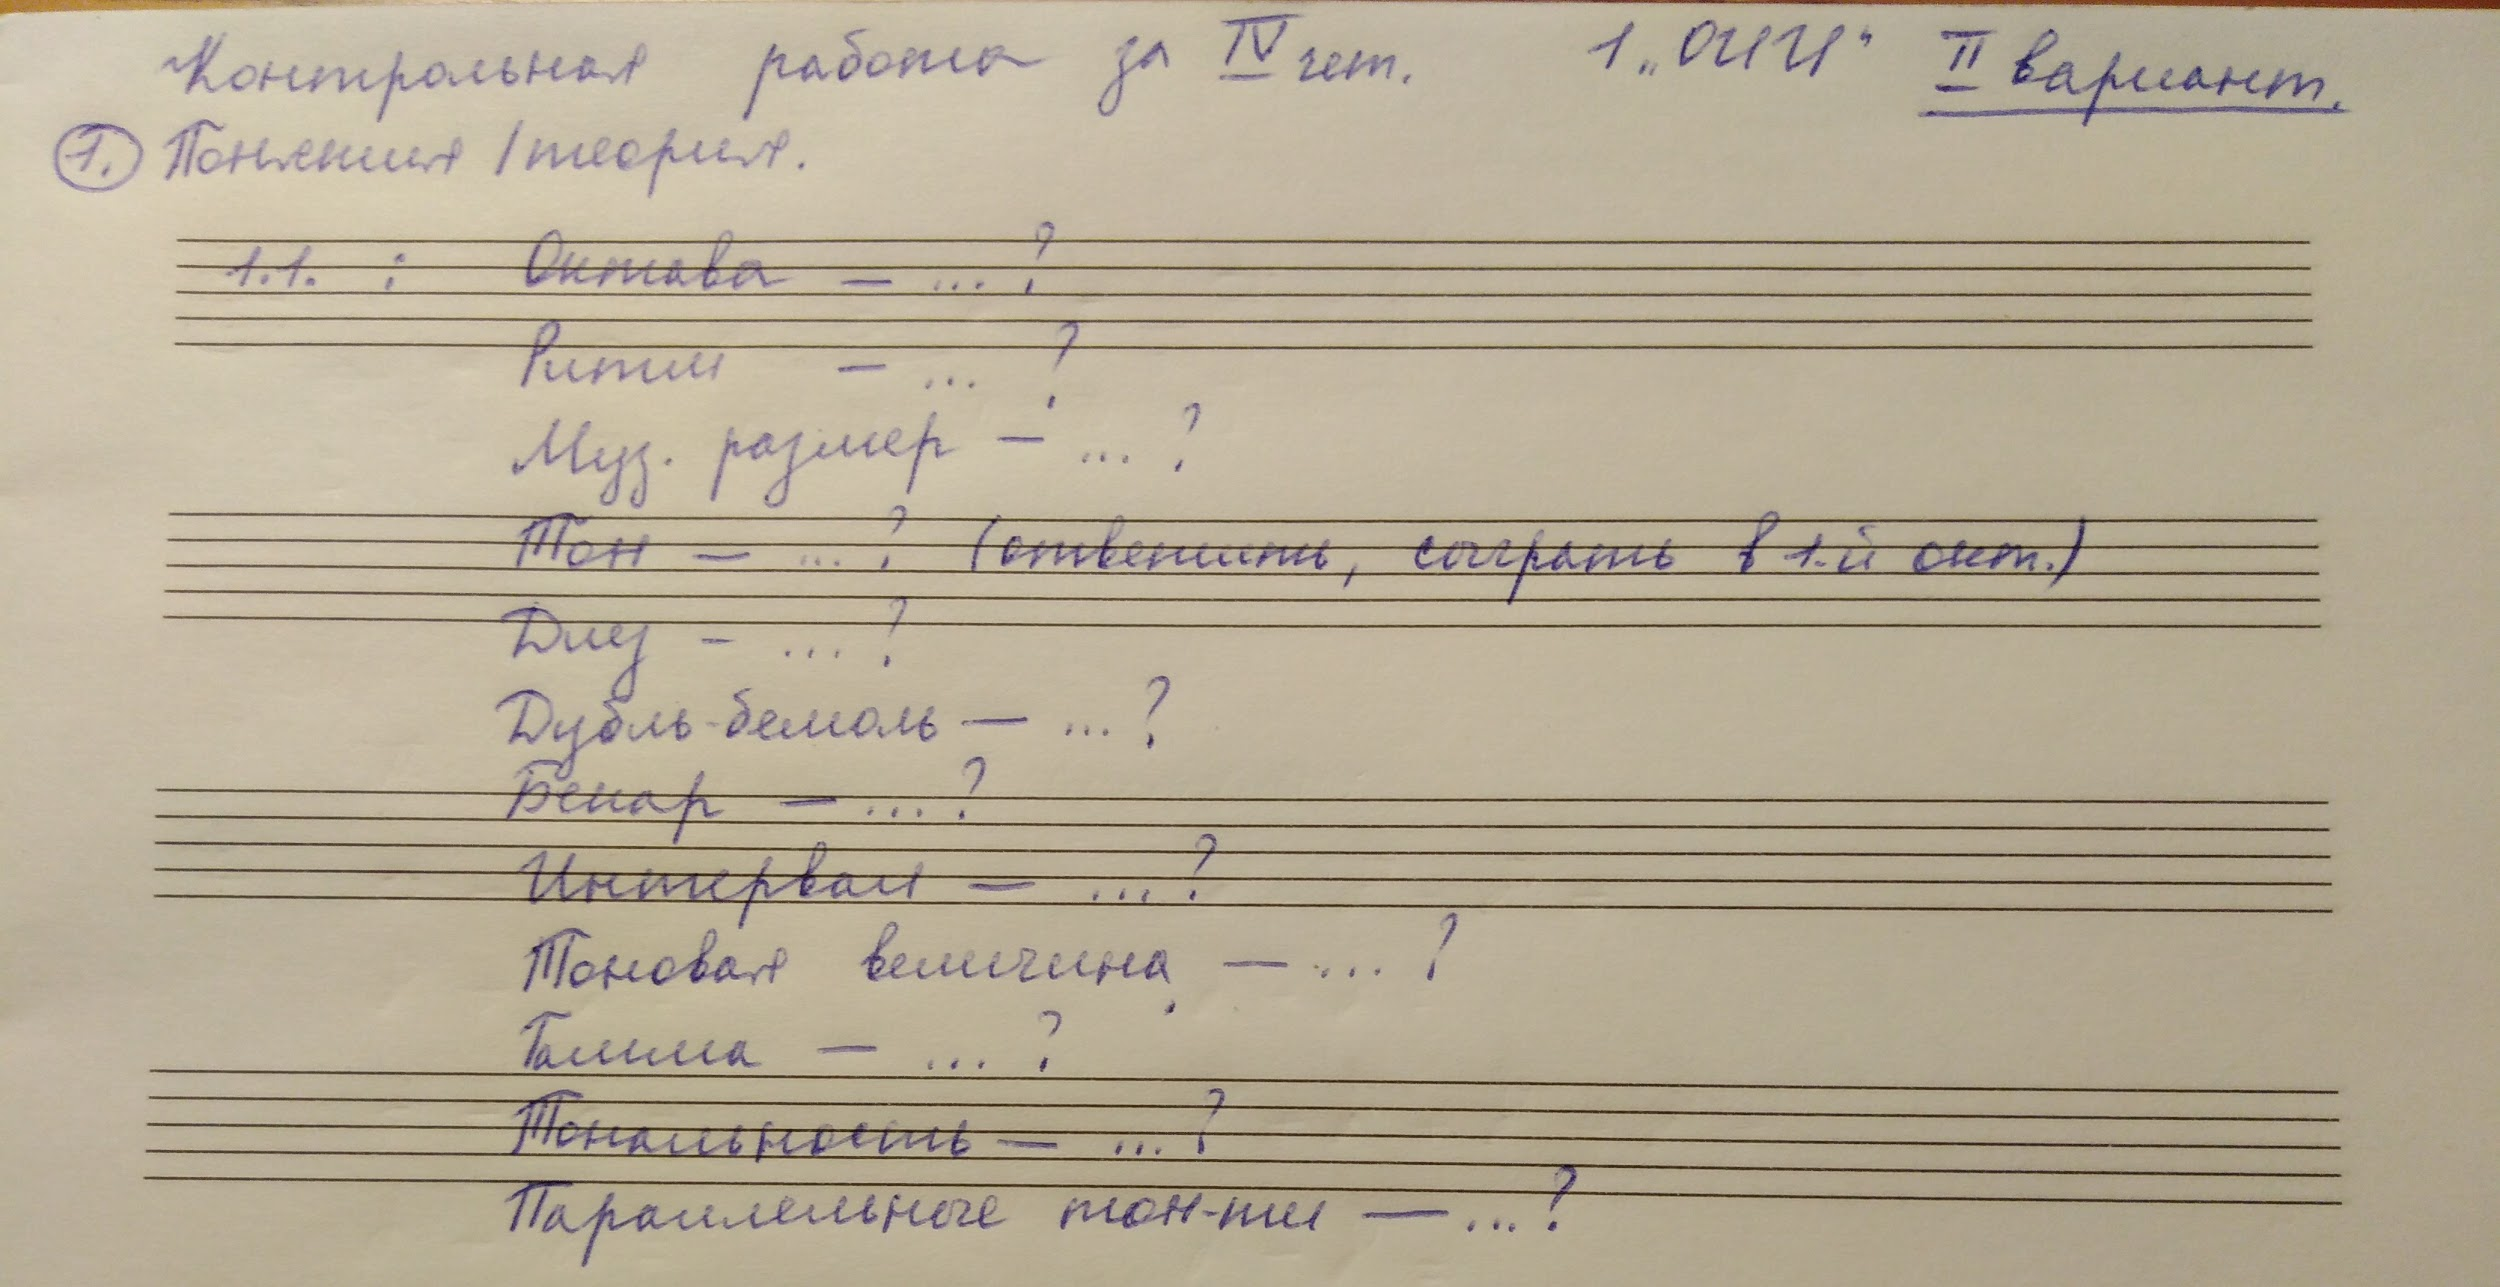 Контрольная работа за IV чет. 1 „ОИИ“ II вариант.
1. Понятия / теория.
1.1. : Октава — ...?
Ритм — ... ?
Муз. размер — ...?
Тон — ...? (ответить, сыграть в 1-й окт.)
Диез - ...?
Дубль-бемоль — ...?
Бекар — ...?
Интервал — ...?
Тоновая величина — ... ?
Гамма — ... ?
Тональность — ...?
Параллельные тон-ти — ...?